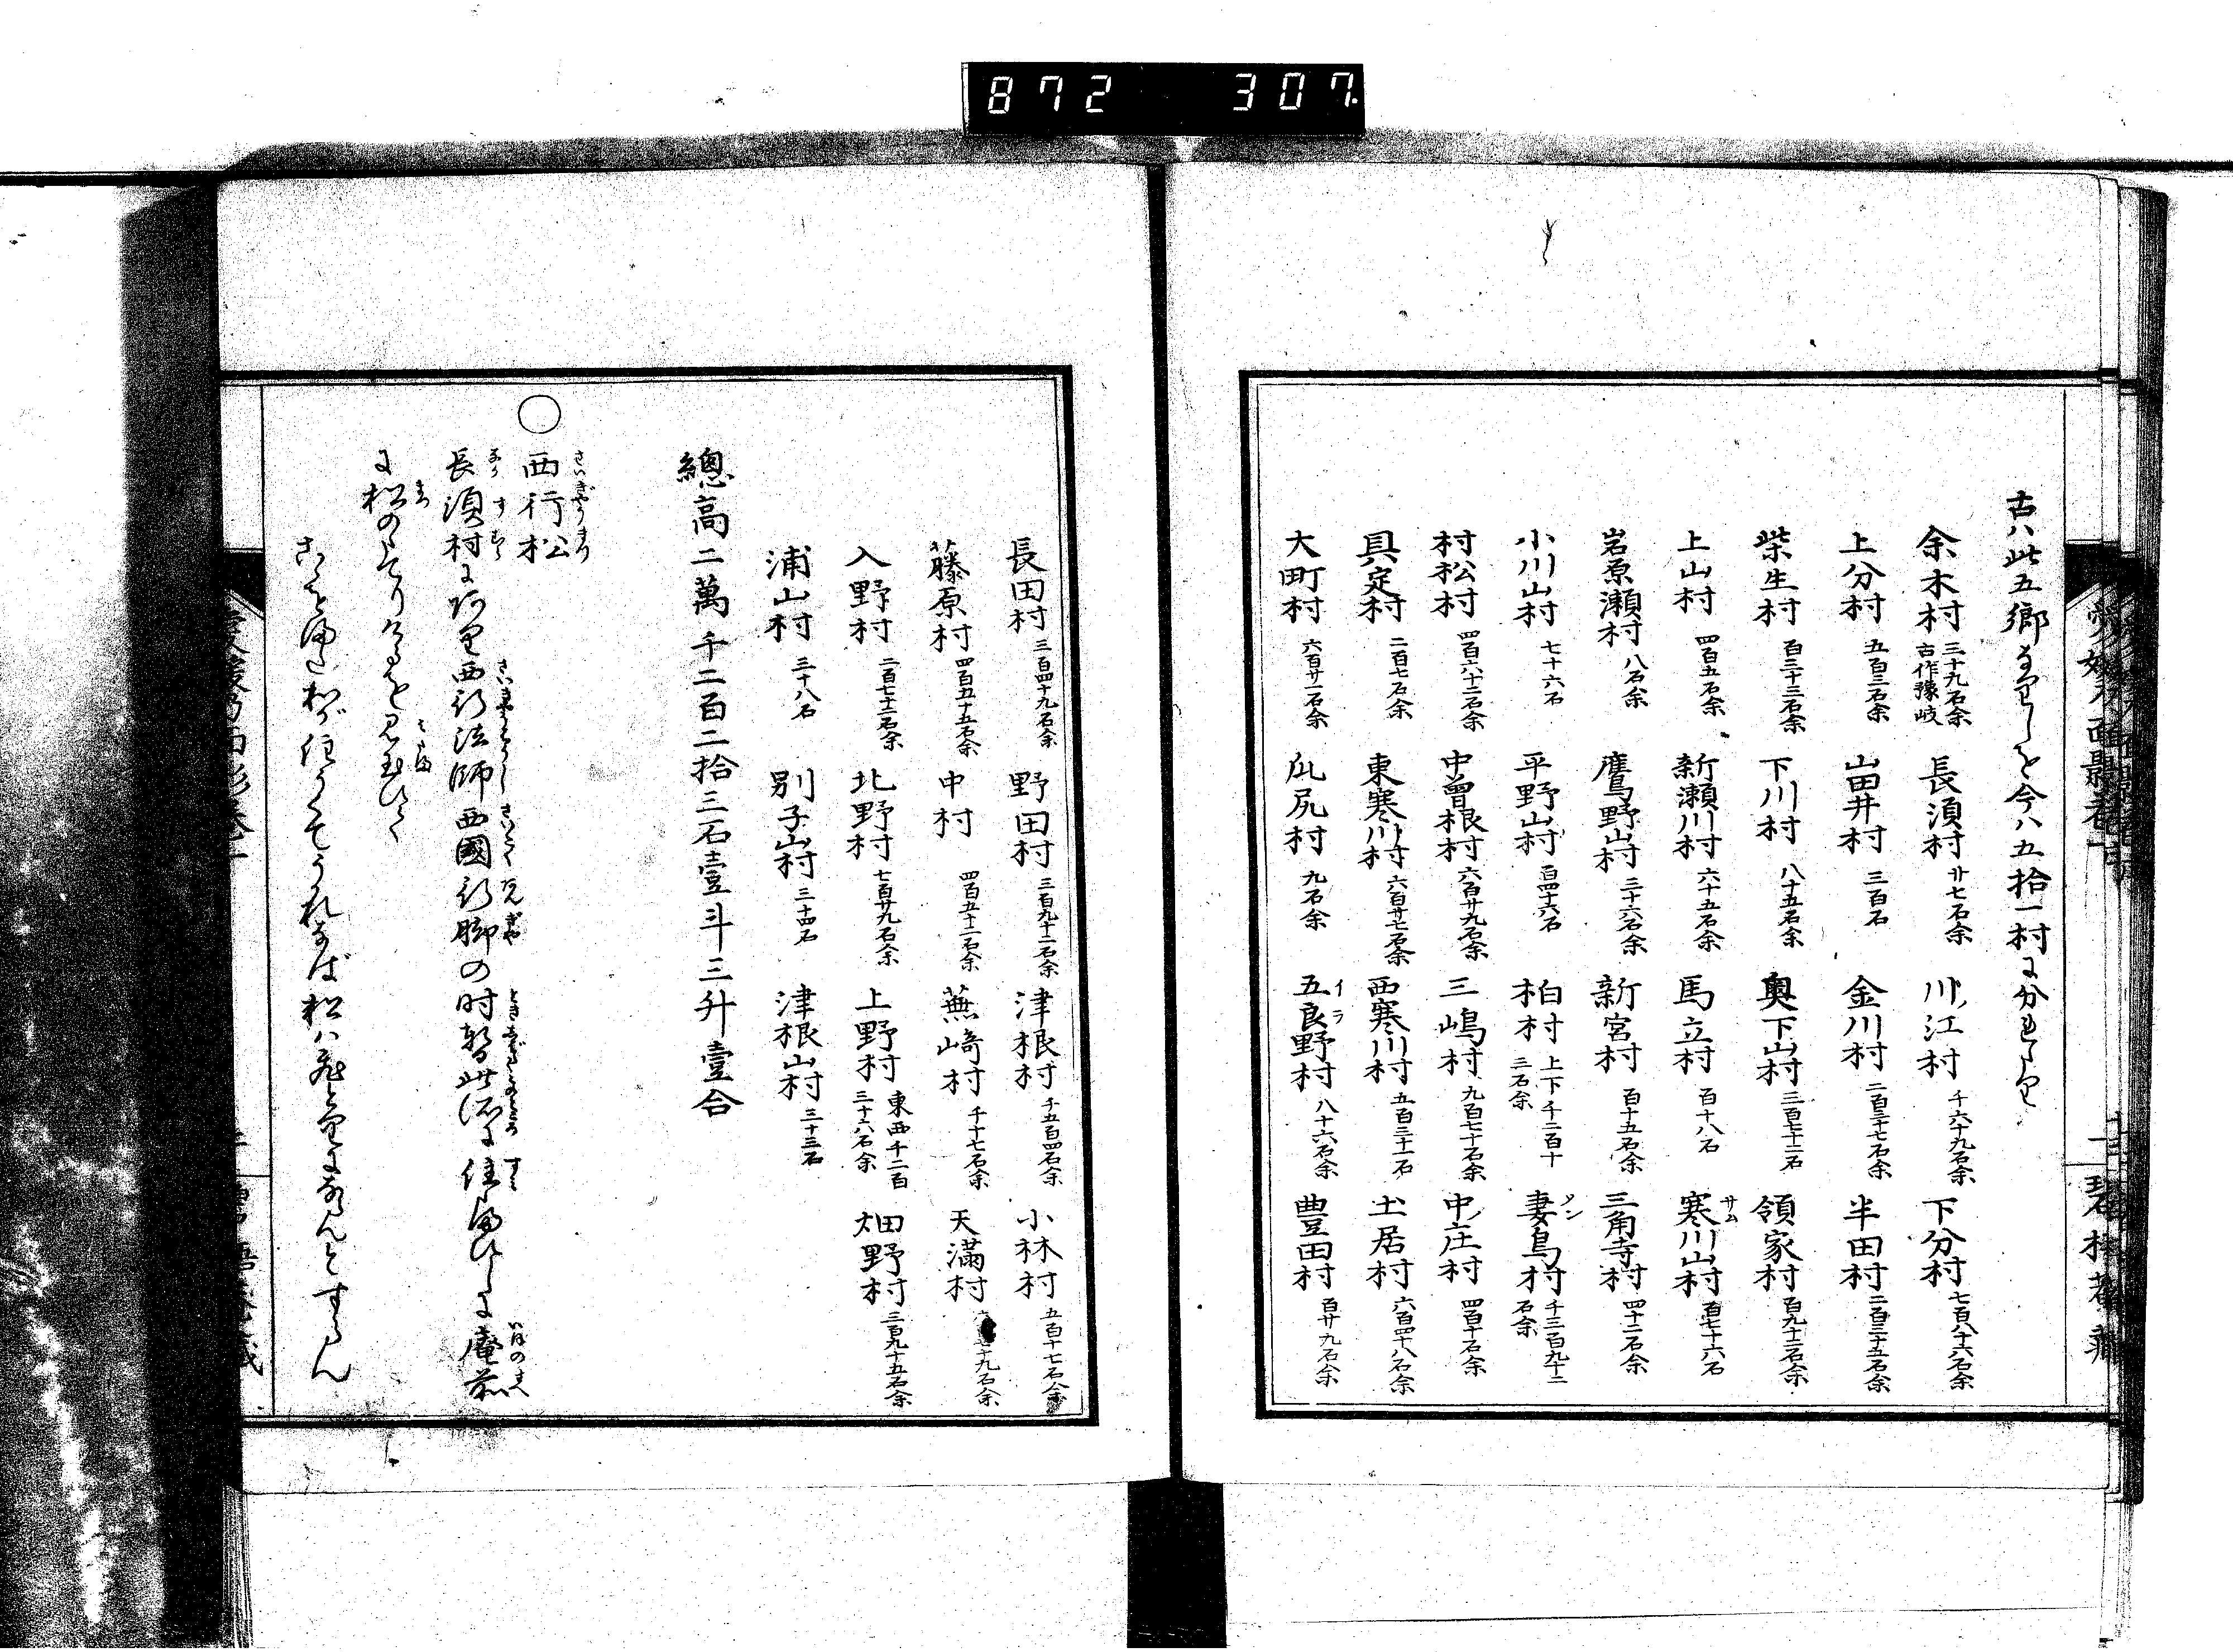 872 307
古ハ此五郷なりしを今ハ五拾一村に分れたり
余木村 三十九石余 古作豫岐 長須村 廿七石余 川ノ江村 千六十九石余 下分村 七百八十六石余
上分村 五百三石余 山田井村 三百石 金川村 二百三十七石余 半田村 二百三十五石余
柴生村 百三十三石余 下川村 八十五石余 奥下山村 三百七十二石 領家村 百九十三石余
上山村 四百五石余 新瀬川村 六十五石余 馬立村 百十八石 寒川山村 サム 百七十六石
岩原瀬村 八石余 鷹野山村 三十六石余 新宮村 百十五石余 三角寺村 四十二石余
小川山村 七十六石 平野山村 百四十六石 柏村 上下千二百十三石余 妻鳥村 メン 千三百九十二石余
村松村 四百六十二石余 中曽根村 六百廿九石余 三嶋村 九百七十石余 中ノ庄村 四百十石余
具定村 二百七石余 東寒川村 六百廿七石余 西寒川村 五百三十一石 土居村 六百四十八石余
大町村 六百廿一石余 尻村 九石余 五良野村 イラ 八十六石余 豊田村 百廿九石余
長田村 三百四十九石余 野田村 三百九十二石余 津根村 千五百四石余 小林村 五百十七石余
藤原村 四百五十五石余 中村 四百五十二石余 蕪崎村 千十七石余 天満村 十九石余
入野村 二百七十二石余 北野村 七百廿九石余 上野村 東西千二百三十六石余 畑野村 三百九十五石余
浦山村 三十八石 別子山村 三十四石 津根山村 三十三石
總高二萬千二百二拾三石壹斗三升壹合
○西行松 さいぎやうまつ
長須村に西行法師西國行脚の时暫此所に住給ひしに庵前
に松のありけるを見玉ひて
松が住うくてうれなば松ハ獨にならんとすらん